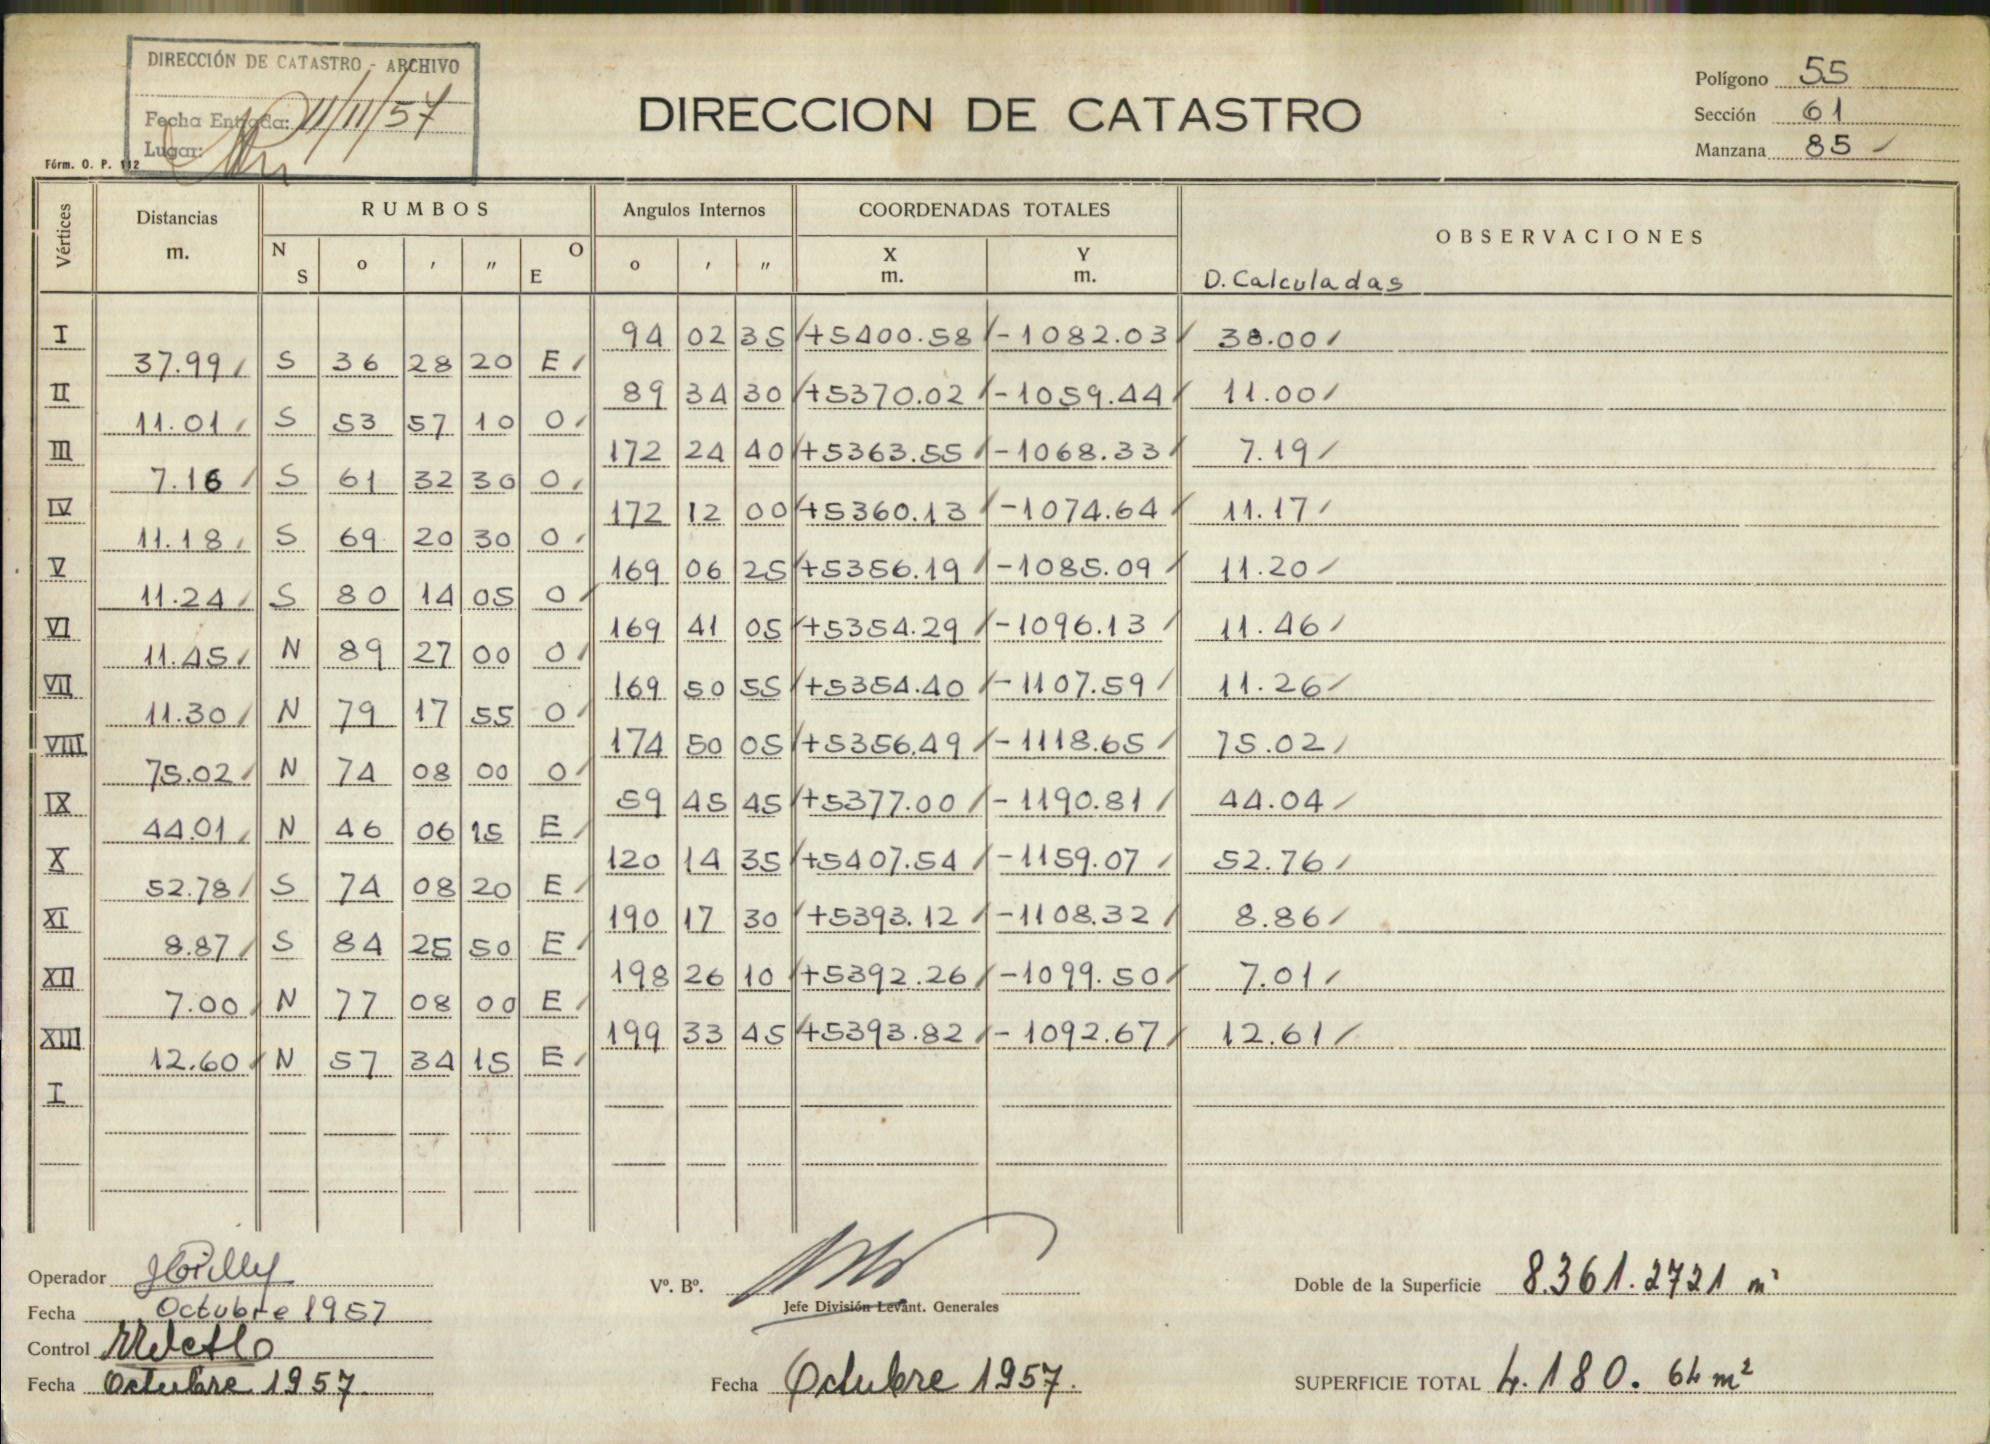 DIRECCIÓN DE CATASTRO - ARCHIVO
Fecha Entrada: 11/11/57
Lugar:
Fórm. O. P. 112
DIRECCION DE CATASTRO
Polígono 55
Sección 61
Manzana 85
Vértices Distancias m. RUMBOS Angulos Internos COORDENADAS TOTALES OBSERVACIONES
N S o ' " O E o ' " X m. Y m. D. Calculadas
I 94 02 35 +5400.58 -1082.03 38.00
37.99 S 36 28 20 E
II 89 34 30 +5370.02 -1059.44 11.00
11.01 S 53 57 10 O
III 172 24 40 +5363.55 -1068.33 7.19
7.16 S 61 32 30 O
IV 172 12 00 +5360.13 -1074.64 11.17
11.18 S 69 20 30 O
V 169 06 25 +5356.19 -1085.09 11.20
11.24 S 80 14 05 O
VI 169 41 05 +5354.29 -1096.13 11.46
11.45 N 89 27 00 O
VII 169 50 55 +5354.40 -1107.59 11.26
11.30 N 79 17 55 O
VIII 174 50 05 +5356.49 -1118.65 75.02
75.02 N 74 08 00 O
IX 59 45 45 +5377.00 -1190.81 44.04
44.01 N 46 06 15 E
X 120 14 35 +5407.54 -1159.07 52.76
52.78 S 74 08 20 E
XI 190 17 30 +5393.12 -1108.32 8.86
8.87 S 84 25 50 E
XII 198 26 10 +5392.26 -1099.50 7.01
7.00 N 77 08 00 E
XIII 199 33 45 +5393.82 -1092.67 12.61
12.60 N 57 34 15 E
I
Operador
Fecha Octubre 1957
Control
Fecha Octubre 1957.
Vº. Bº.
Jefe División Levant. Generales
Fecha Octubre 1957.
Doble de la Superficie 8.361.2721 m²
SUPERFICIE TOTAL 4.180.64 m²